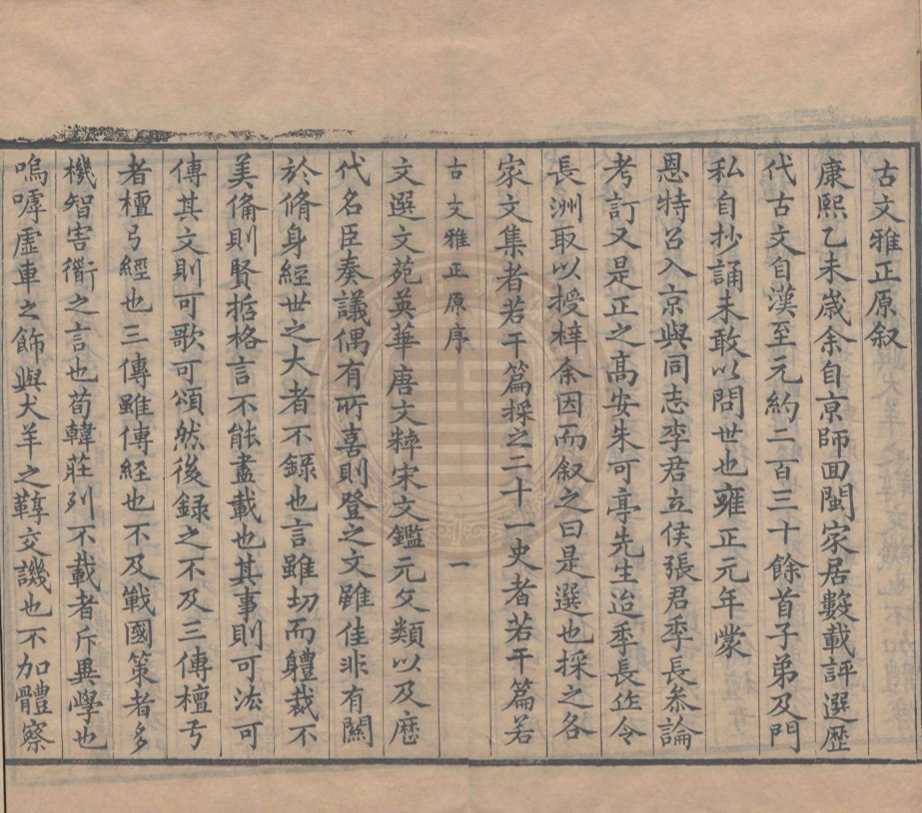 古文雅正原叙
康熙乙未歲余自京師回閩家居數載評選歴
代古文自漢至元約二百三十餘首子弟及門
私自抄誦未敢以問世也雍正元年蒙
恩特召入京與同志李君立侯張君季長叅論
考訂又是正之髙安朱可亭先生迨季長作令
長洲取以授梓余因而叙之曰是選也採之各
家文集者若干篇採之二十一史者若干篇若
古文雅正原序 一
文選文苑英華唐文粹宋文鑑元文類以及歴
代名臣奏議偶有所喜則登之文雖佳非有關
於脩身經世之大者不録也言雖切而體裁不
美備則賢哲格言不能盡載也其事則可法可
傳其文則可歌可頌然後録之不及三傳檀弓
者檀弓經也三傳雖傳經也不及戰國策者多
機智害道之言也荀韓莊列不載者斥異學也
嗚嘑虛車之飾與犬羊之鞟交譏也不加體察